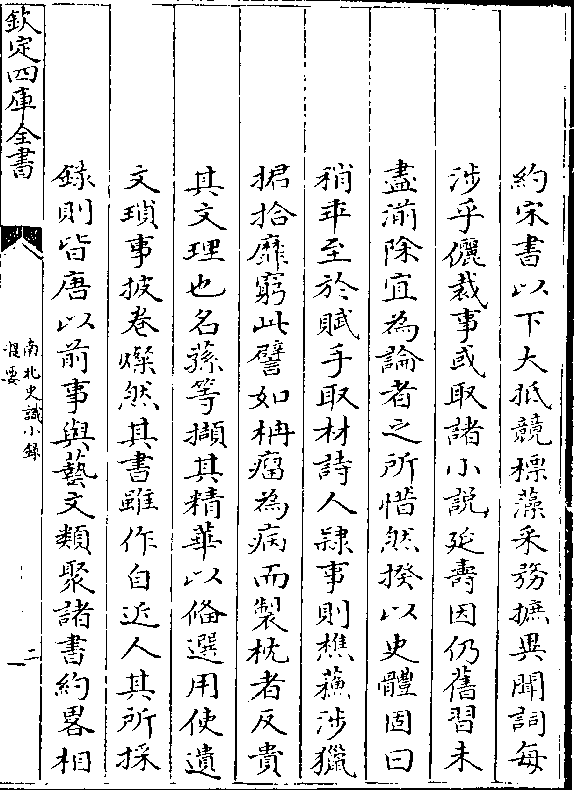 約宋書以下大抵競標藻采務摭異聞詞每
涉乎儷裁事或取諸小説延壽因仍舊習未
盡湔除宜為論者之所惜然揆以史體固曰
稍乖至於賦手取材詩人隷事則樵蘇涉獵
捃拾靡窮此譬如柟瘤為病而製枕者反貴
其文理也名蓀等擷其精華以備選用使遺
文瑣事披卷燦然其書雖作自近人其所採
録則皆唐以前事與藝文類聚諸書約畧相
欽定四庫全書
南北史識小録
提要
二